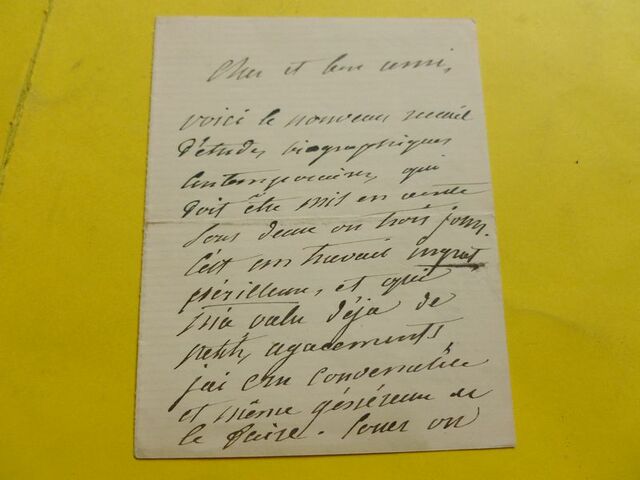 Cher et bon ami,
voici le nouveau recueil
d'études biographiques
contemporaines, qui
doit être mis en vente
sous deux ou trois jours.
C'est un travail ingrat
périlleux, et qui
m'a valu déjà de
petits agacements,
j'ai cru convenable
et même généreux de
le faire. Louer ou